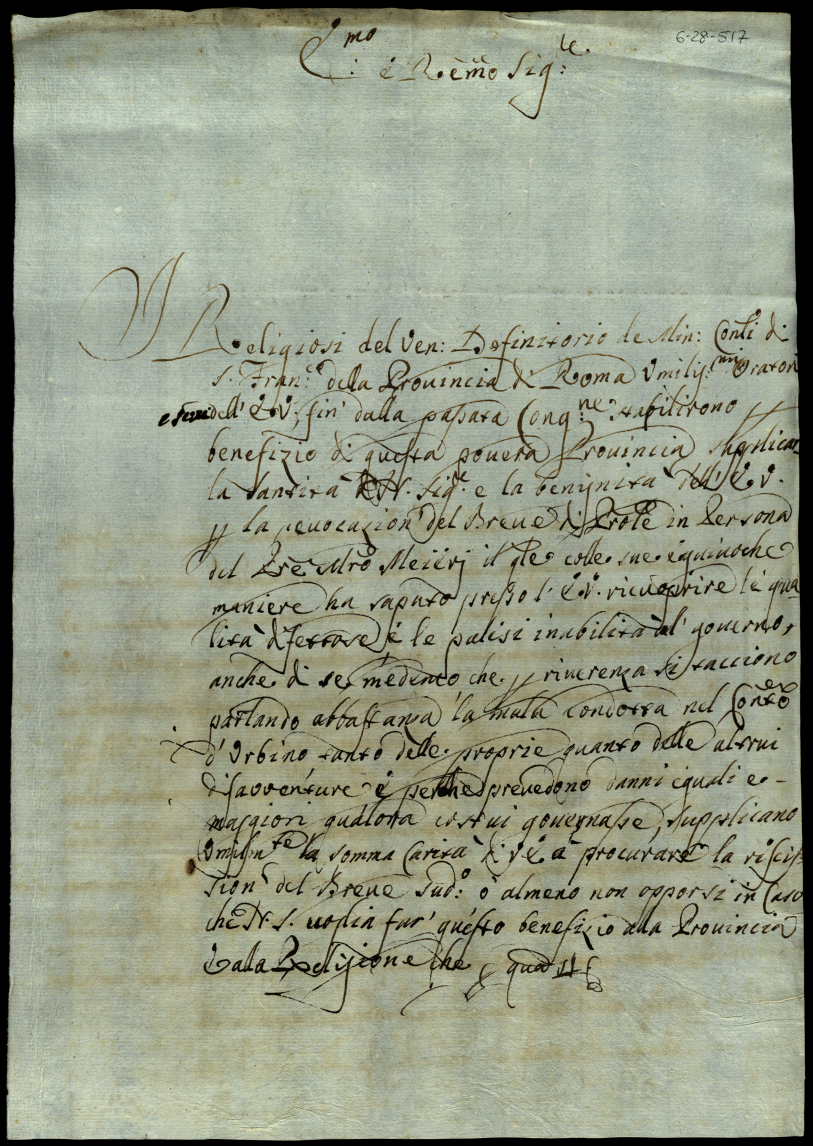 6-28-517
E.mo é R.emo Sig.le
I Religiosi del Ven: Definitorio de Min: Con.li di
S. Fran.co della Prouincia di Roma Vmiliss.mi Oratori
e serui dell' E.V., fin' dalla passata Cong.ne stabilirono p
benefizio di questa pouera Prouincia supplicar
la santità di N. Sig.e e la benignità dell' E.V.
p la reuocazion' del Breue di Prole in Persona
del Pre Mro Meierj il qle colle sue equiuoche
maniere ha saputo presso l' E.V. ricuoprire le qua
lità difettose, é le palesi inabilità al' gouerno,
anche di se medemo che p riuerenza si tacciono
parlando abbastanza la mala condotta nel Conto
d' Vrbino tanto delle proprie quanto delle altrui
disauuenture é perche preuedono danni eguali e
maggiori qualora costui gouernasse, supplicano
Vmilm.te la somma Carità di VE à procurare la rescis
sion' del Breue Sud.o ò almeno non opporsi in Caso
che N.S. uoglia far' questo benefizio alla Prouincia
é alla Religione che quas